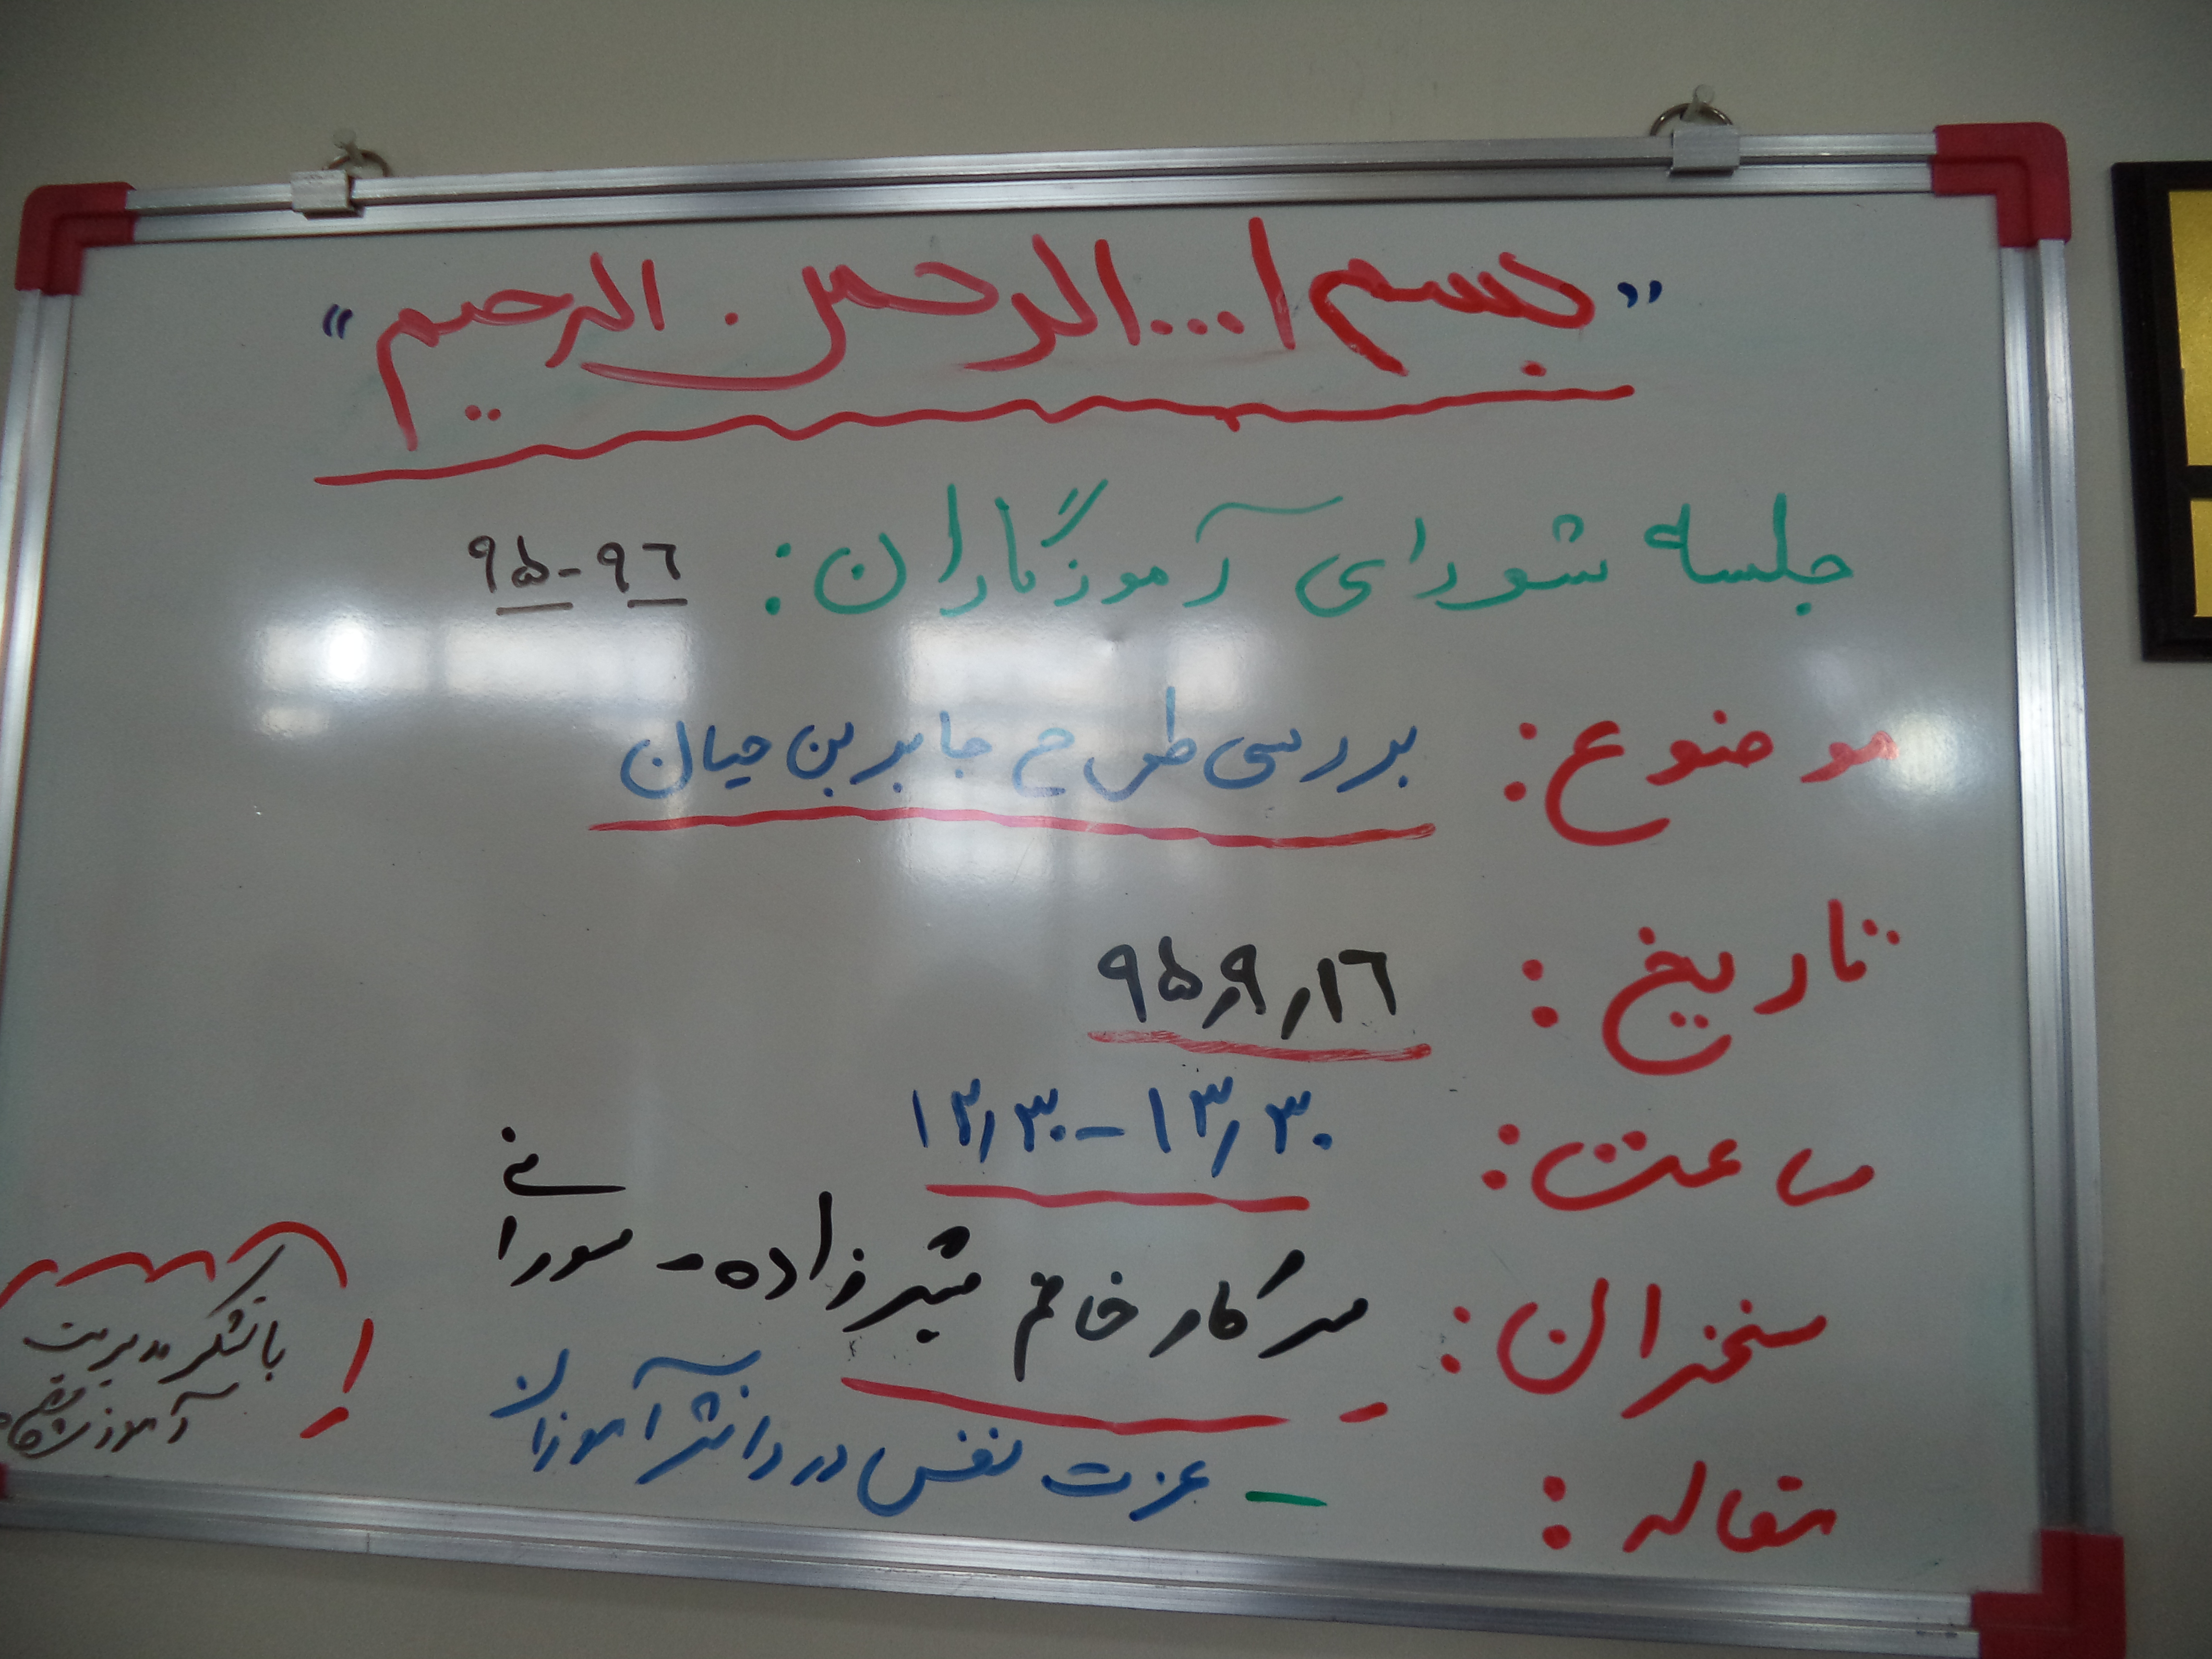 "بسم ا... الرحمن الرحیم"
جلسه شورای آموزگاران: ۹۵-۹۶
موضوع: بررسی طرح جابر بن حیان
تاریخ: ۹۵٫۹٫۱۶
ساعت: ۱۲٫۳۰-۱۳٫۳۰
سخنران: سرکار خانم شیرزاده - سورانی
مقاله: - عزت نفس در دانش آموزان
باتشکر مدیریت
آموزشگاه